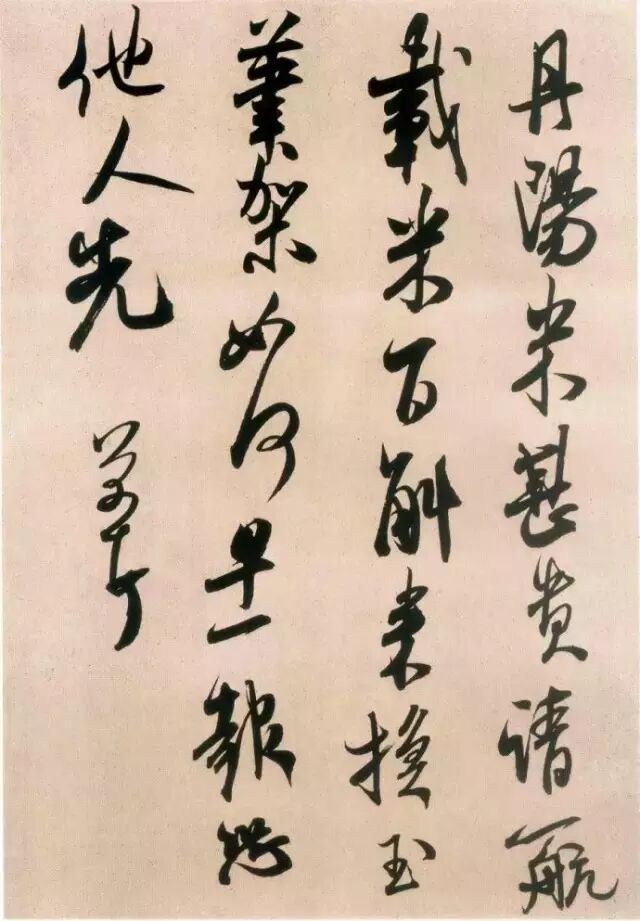 丹陽米甚貴請一航
載米百斛來換玉
筆架如何早一報恐
他人先 芾頓首